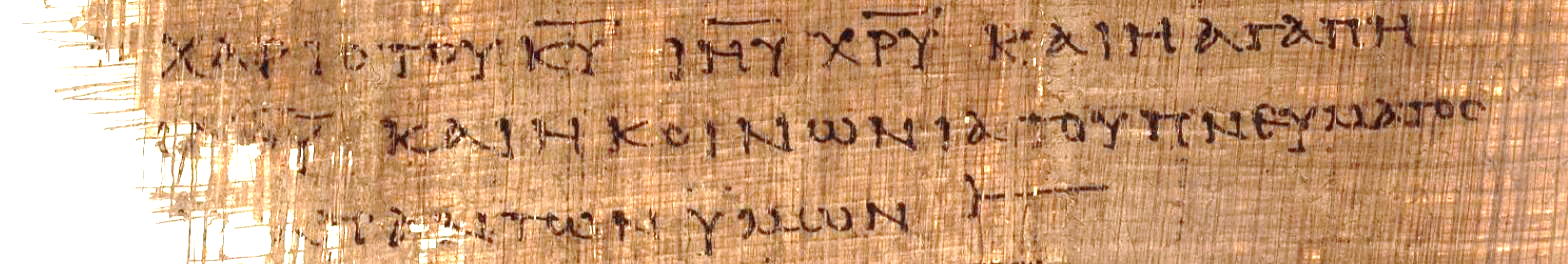 ΧΑΡΙϹ ΤΟΥ Κ̅Υ̅ Ι̅Η̅Υ̅ Χ̅Ρ̅Υ̅ ΚΑΙ Η ΑΓΑΠΗ
ΚΑΙ Η ΚΟΙΝΩΝΙΑ ΤΟΥ ΠΝΕΥΜΑΤΟϹ
ΠΑΝΤΩΝ ΫΜΩΝ